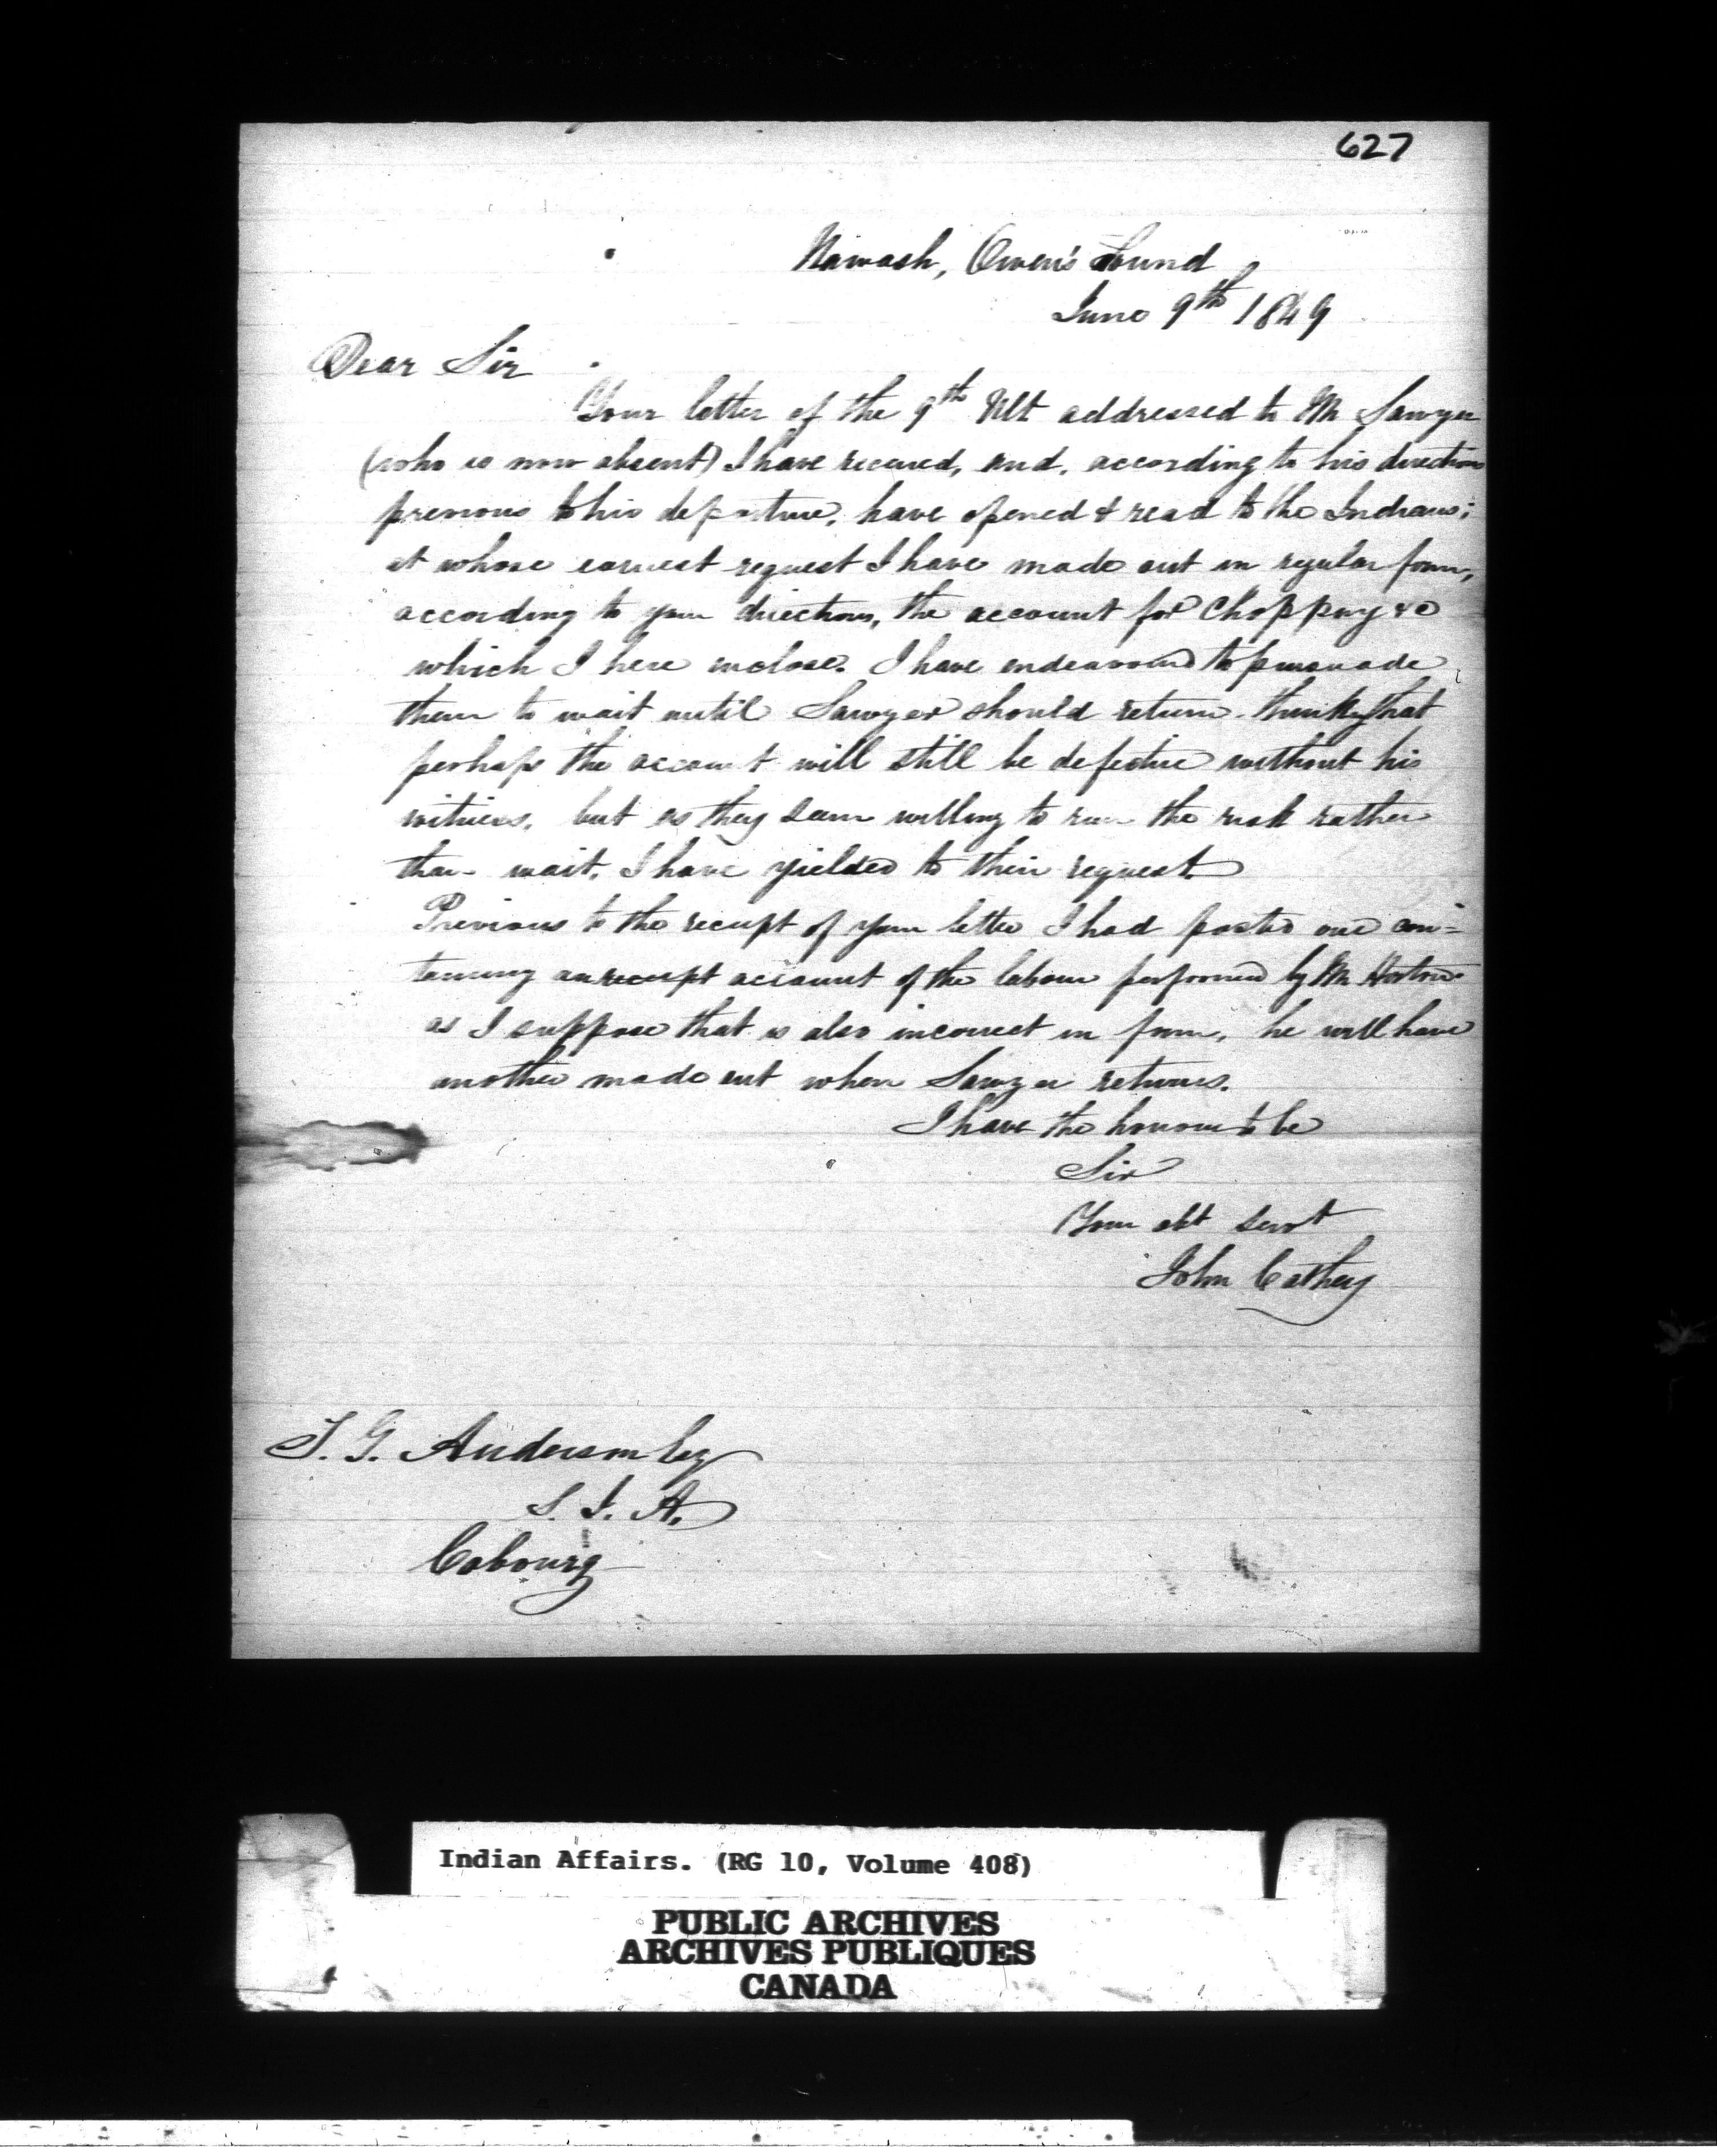 627
Nawash, Owen's Sound
June 9th 1849
Dear Sir
Your letter of the 9th Ult addressed to Mr Sawyer
(who is now absent) I have received, and, according to his directions
previous to his departure, have opened & read to the Indians;
at whose earnest request I have made out in regular form,
according to your directions, the account for Chopping &c
which I here inclose. I have endeavoured to persuade
them to wait until Sawyer should return. thinking that
perhaps the account will still be defective without his
witness, but as they seem willing to run the risk rather
than wait, I have yielded to their request.
Previous to the receipt of your letter I had posted one con=
taining an account of the labour performed by Mr Horton
as I suppose that is also incorrect in form, he will have
another made out when Sawyer returns.
I have the honour to be
Sir
Your obt servt
John Cathey
T. G. Anderson Esq
S. I. A.
Cobourg
Indian Affairs. (RG 10, Volume 408)
PUBLIC ARCHIVES
ARCHIVES PUBLIQUES
CANADA